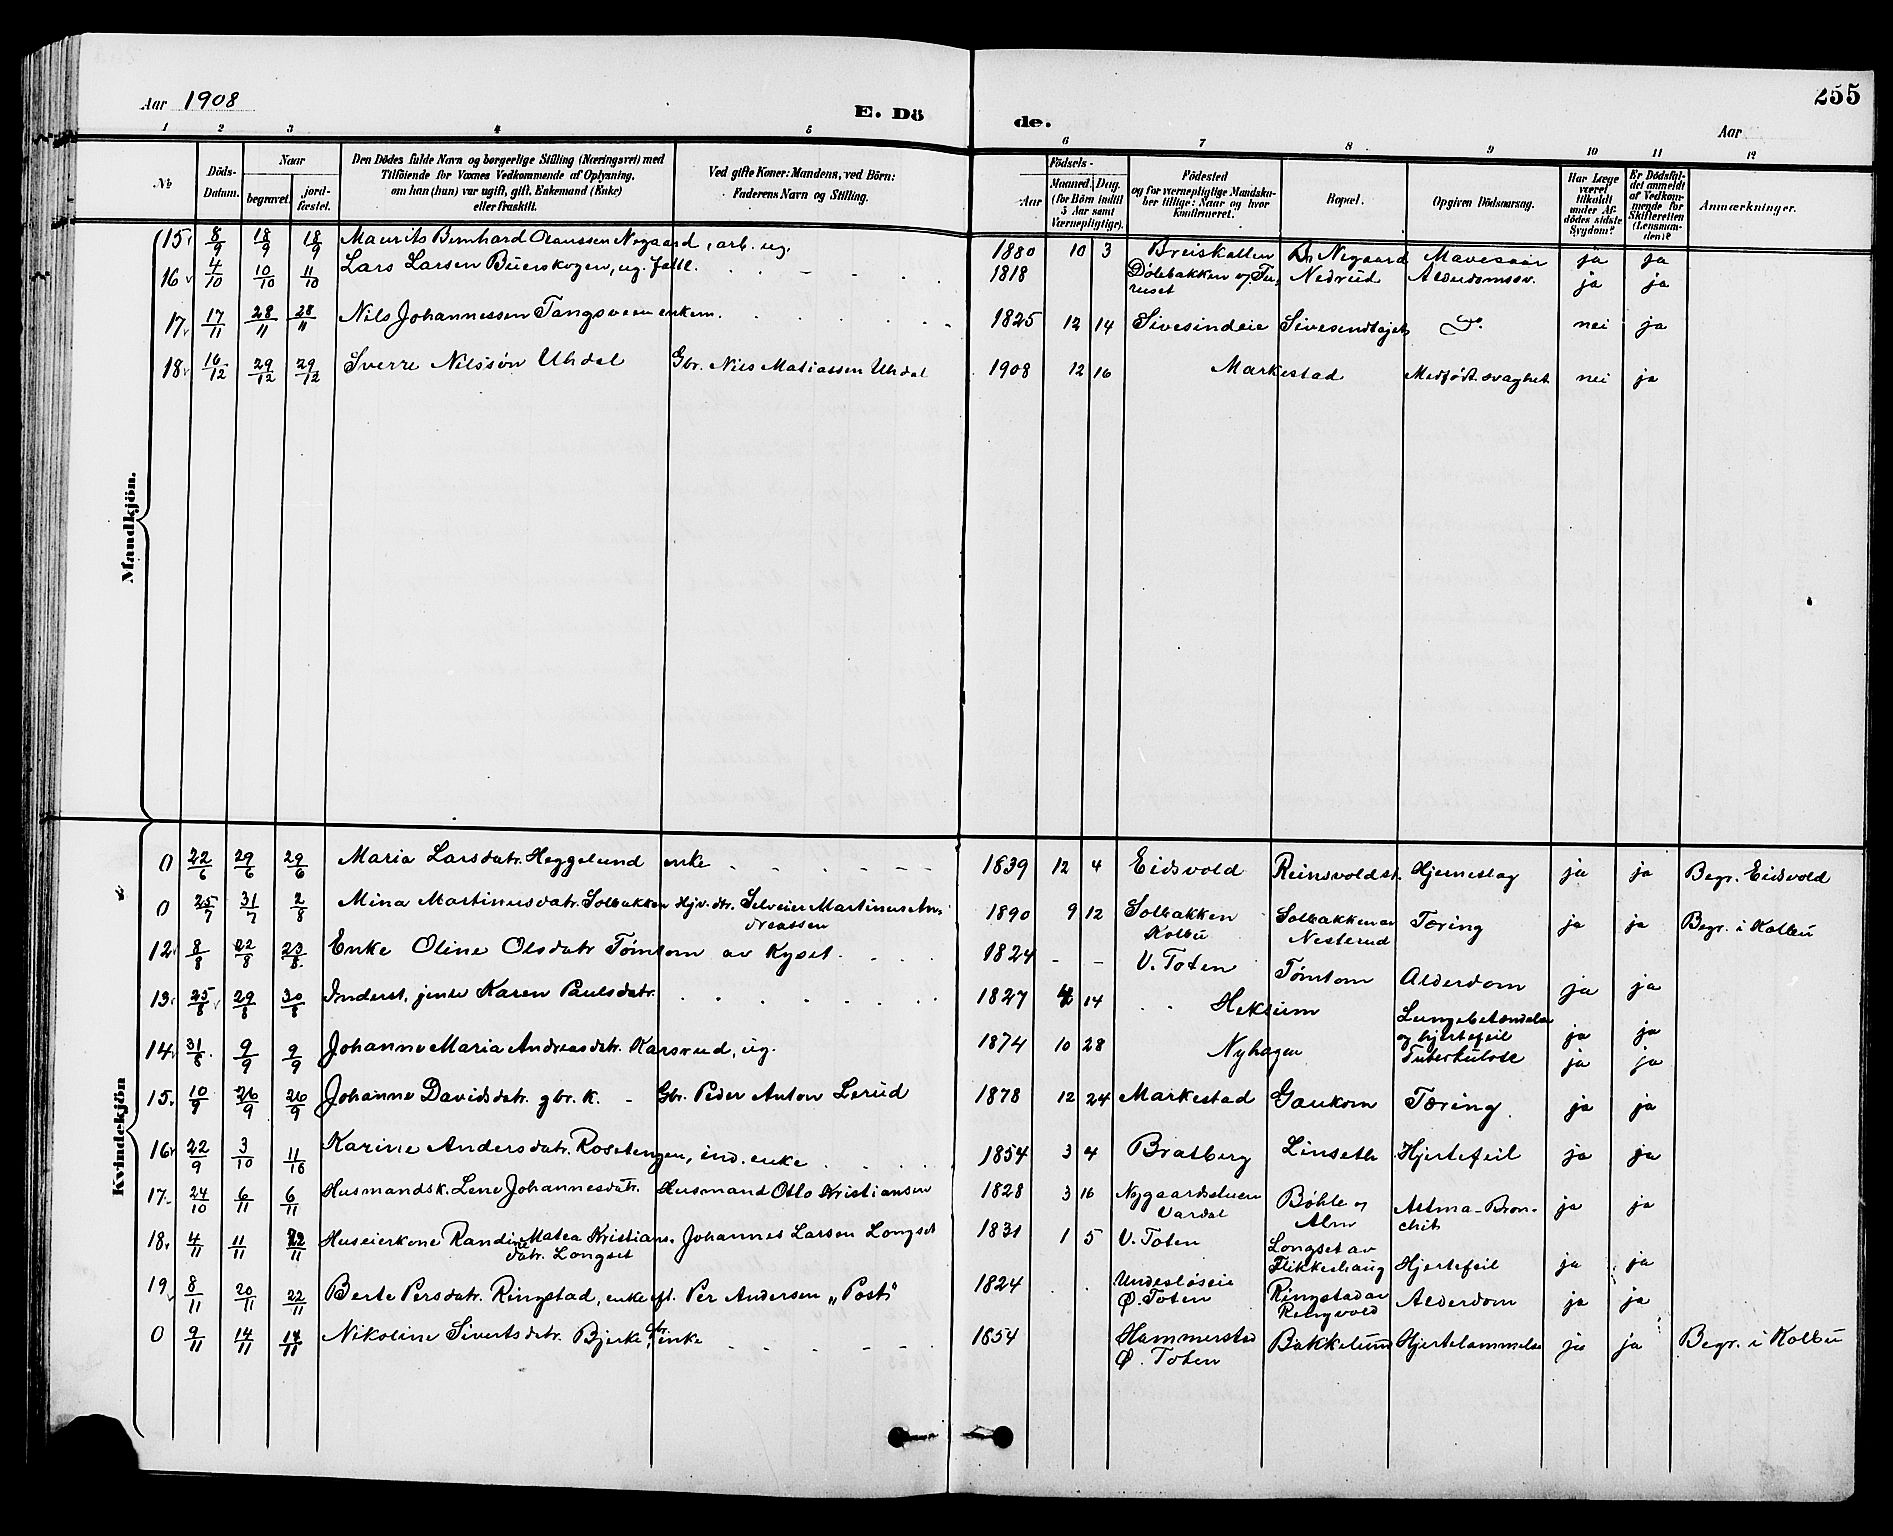 Aar 1908
E. Dö de.
255
Aar
1 2 3 4 5 6 7 8 9 10 11 12
No
Döds-Datum.
Naar
begravet.
jord-fæstet.
Den Dödes fulde Navn og borgerlige Stilling (Næringsvei) med
Tilföiende for Voxnes Vedkommende af Oplysning,
om han (hun) var ugift, gift, Enkemand (Enke)
eller fraskilt.
Ved gifte Koner: Mandens, ved Börn:
Faderens Navn og Stilling.
Födsels-
Aar
Maaned. Dag.
(for Börn indtil
5 Aar samt
Værnepligtige).
Födested
og for værnepligtige Mandska-
ber tillige: Naar og hvor
Konfirmeret.
Bopæl.
Opgiven Dödsaarsag.
Har Læge
været
tilkaldt
under Af-
dödes sidste
Sygdom?
Er Dödsfal-
det anmeldt
af Vedkom-
mende for
Skifteretten
(Lensman-
den)?
Anmærkninger.
Mandkjön.
15 8/9 18/9 18/9 Maurits Bernhard Olaussen Negaard, arb. ug. 1880 10 3 Breiskallen Negaard Mavesaar ja ja
16 4/10 10/10 11/10 Lars Larsen Buerskogen, ug. fattl. 1818 Dølebakken Nedrud Alderdomssv. ja ja
17 17/11 28/11 28/11 Nils Johannessen Tangsveen enkem. 1825 12 14 Sivesindeie Sivesindlaget Do. nei ja
18 16/12 29/12 29/12 Sverre Nilssøn Uhdal Gbr. Nils Matiassen Uhdal 1908 12 16 Markestad Medfødt svaghet nei ja
Kvindekjön
0 22/6 29/6 29/6 Maria Larsdatr. Heggelund enke 1839 12 4 Eidsvold Reinsvoldst. Hjerneslag ja ja Begr. Eidsvold
0 25/7 31/7 2/8 Mina Martinusdatr. Solbakken Hjv. dtr. Selveier Martinus An-
dreassen 1890 9 12 Solbakken
Kolbu Solbakken av
Nesterud Tæring ja ja Begr. i Kolbu
12 8/8 22/8 23/8 Enke Oline Olsdatr Tømtom av Kyset 1824 - - V. Toten Tømtom Alderdom ja ja
13 25/8 29/8 30/8 Inderst, jente Karen Paulsdatr. 1827 4 14 Heksum Lungebetændelse
og hjertefeil ja ja
14 31/8 9/9 9/9 Johanne Maria Andreasdatr. Karsrud, ug. 1874 10 28 Nyhagen Tuberkulose ja ja
15 10/9 26/9 26/9 Johanne Davidsdatr. gbr. k. - Gbr. Peder Anton Lerud 1878 12 24 Markestad Gaukom Tæring. ja ja
16 22/9 3/10 11/10 Karine Andersdatr. Rosetengen, ind. enke 1854 3 4 Bratberg Linseth Hjertefeil ja ja
17 24/10 6/11 6/11 Husmandsk. Lene Johannesdatr. Husmand Otto Kristiansen 1828 3 16 Nygaardstuen
Vardal Bøhle og
Alm Astma-Bron-
chit ja ja
18 4/11 11/11 22/11 Huseierkone Randine Matea Kristians-
datr. Longset Johannes Larsen Longset 1831 1 5 V. Toten Longset av
Flikkeshaug Hjertefeil ja ja
19 8/11 20/11 22/11 Berte Persdatr. Ringstad, enke eft. Per Andersen "Post" 1824 Undesløseie
Ø. Toten Ringstad av
Ringvold Alderdom ja ja
0 9/11 14/11 14/11 Nikoline Sivertsdatr. Bjerke, gbr. enke 1854 Hammerstad
Ø. Toten Bakkelund Hjertelammelse ja ja Begr. i Kolbu